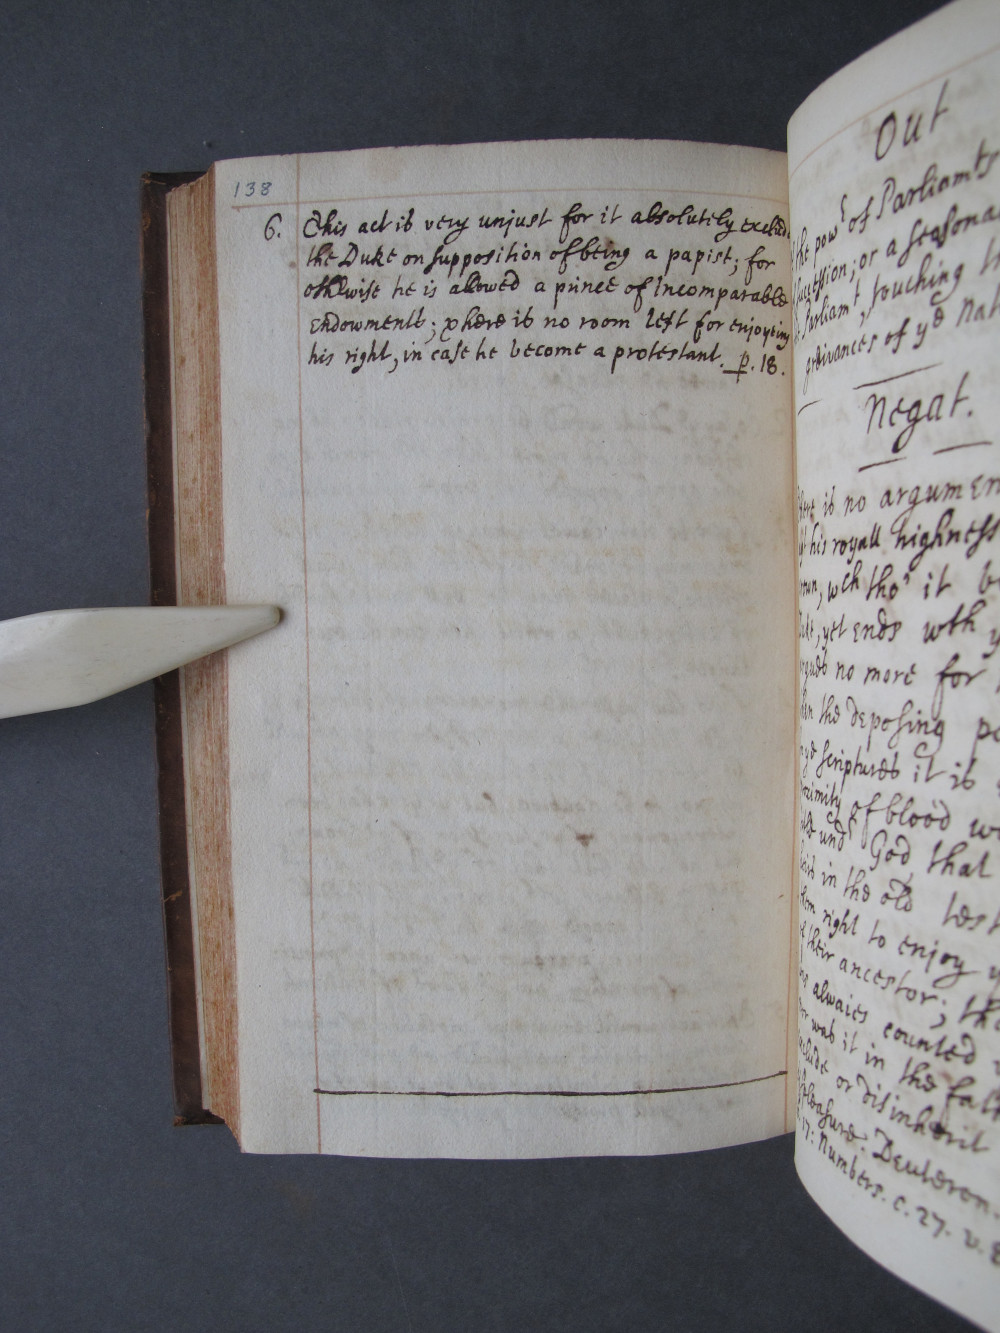 138
6. This act is very unjust for it absolutely
the Duke on supposition of being a papist; for
othrwise he is allowed a prince of incomparable
endowments; there is no room left for enjoyeing
his right, in case he become a protestant. p. 18.
Out
the powr of Parliamts
succession; or a seasona
Parliamt, touching
grievances of ye Nat
Negat.
is no argumen
his royall highness
wch tho' it
yet ends wth
no more for
the deposing
ye scriptures it is
of blood
undr God, that
in the old test
right to enjoy
their ancestor; th
alwaies counted
was it in the fat
or disinherit
pleasure. Deuteron.
17: Numbers. c. 27. v. 8